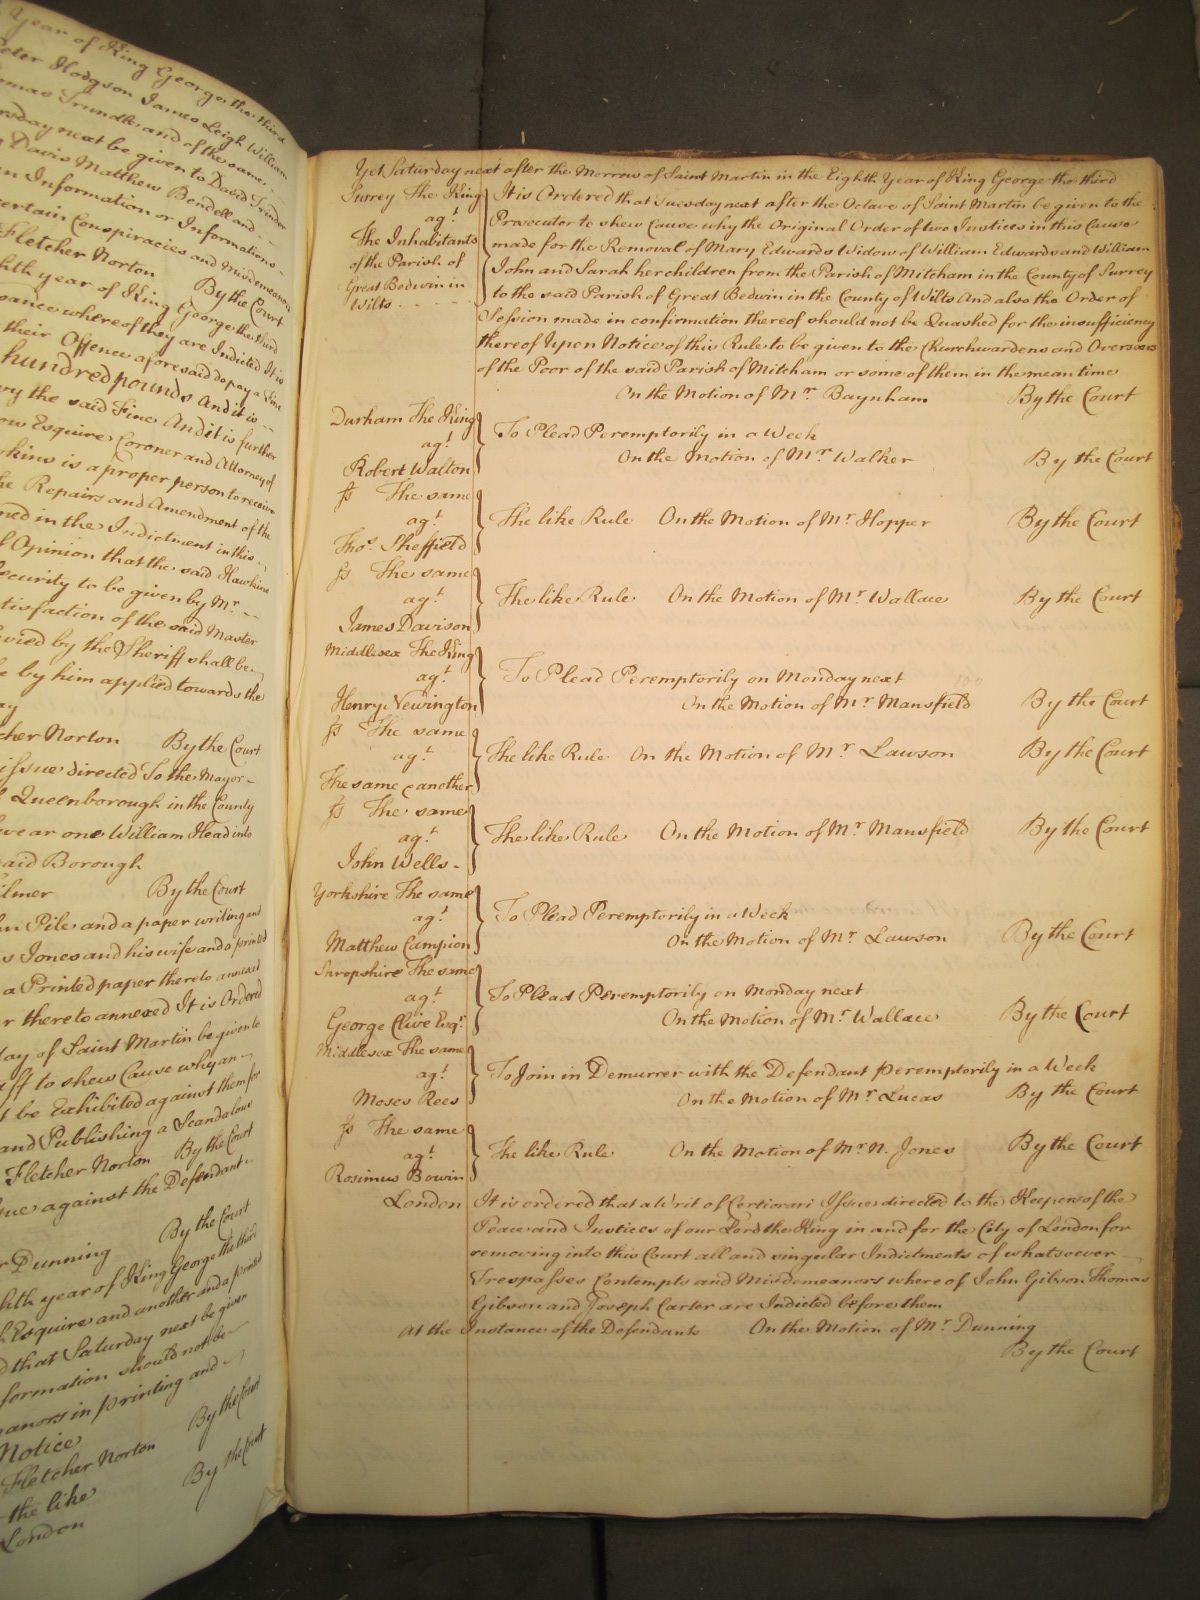 Year of King George the third
Peter Hodgson James Leigh William
Thomas Trundle and of the same
next be given to David Trinder
Davis Matthew Bendell and
an Information or Informations
certain Conspiracies and Misdemeanors
Fletcher Norton By the Court
year of King George the third
whereof they are Indicted It is
their Offence aforesaid do pay a Fine
hundred pounds And it is
the said Fine And it is further
Esquire Coroner and Attorney of
is a proper person to receive
the Repairs and Amendment of the
in the Indictment in this
Opinion that the said Hawkins
Security to be given by Mr
of the said Master
by the Sheriff shall be
by him applied towards the
Norton By the Court
issue directed To the Mayor
Queenborough in the County
swear one William Head into
said Borough
By the Court
Pile and a paper writing and
Jones and his wife and a printed
a Printed paper thereto annexed
thereto annexed It is Ordered
day of Saint Martin be given to
to shew Cause why an
be Exhibited against them for
and Publishing a Scandalous
Fletcher Norton By the Court
against the Defendant
By the Court
Dunning
year of King George the third
Esquire and another and a printed
that Saturday next be given
formation should not be
in printing and
Notice By the Court
Fletcher Norton
the like By the Court
London
Yet Saturday next after the Morrow of Saint Martin in the Eighth Year of King George the third
Surrey The King
agt
The Inhabitants
of the Parish of
Great Bedwin in
Wilts
It is Ordered that Tuesday next after the Octave of Saint Martin be given to the
Prosecutor to shew Cause why the Original Order of two Justices in this Cause
made for the Removal of Mary Edwards Widow of William Edwards and William
John and Sarah her children from the Parish of Mitcham in the County of Surrey
to the said Parish of Great Bedwin in the County of Wilts And also the Order of
Session made in confirmation thereof should not be Quashed for the insufficiency
thereof Upon Notice of this Rule to be given to the Churchwardens and Overseers
of the Poor of the said Parish of Mitcham or some of them in the mean time
On the Motion of Mr Baynham By the Court
Durham The King
agt
Robert Walton
To Plead Peremptorily in a Week
On the Motion of Mr Walker By the Court
ss The same
agt
Thos Sheffield
The like Rule On the Motion of Mr Hopper By the Court
ss The same
agt
James Davison
The like Rule On the Motion of Mr Wallace By the Court
Middlesex The King
agt
Henry Newington
To Plead Peremptorily on Monday next
On the Motion of Mr Mansfield By the Court
ss The same
agt
The same another
The like Rule On the Motion of Mr Lawson By the Court
ss The same
agt
John Wells
The like Rule On the Motion of Mr Mansfield By the Court
Yorkshire The same
agt
Matthew Campion
To Plead Peremptorily in a Week
On the Motion of Mr Lawson By the Court
Shropshire The same
agt
George Clive Esqr
To Plead Peremptorily on Monday next
On the Motion of Mr Wallace By the Court
Middlesex The same
agt
Moses Rees
To Join in Demurrer with the Defendant Peremptorily in a Week
On the Motion of Mr Lucas By the Court
ss The same
agt
Rosimus Bowin
The like Rule On the Motion of Mr N. Jones By the Court
London It is ordered that a Writ of Certiorari Issue directed to the Keepers of the
Peace and Justices of our Lord the King in and for the City of London for
removing into this Court all and singular Indictments of whatsoever
Trespasses Contempts and Misdemeanors where of John Gibson Thomas
Gibson and Joseph Carter are Indicted before them
At the Instance of the Defendants On the Motion of Mr Dunning
By the Court